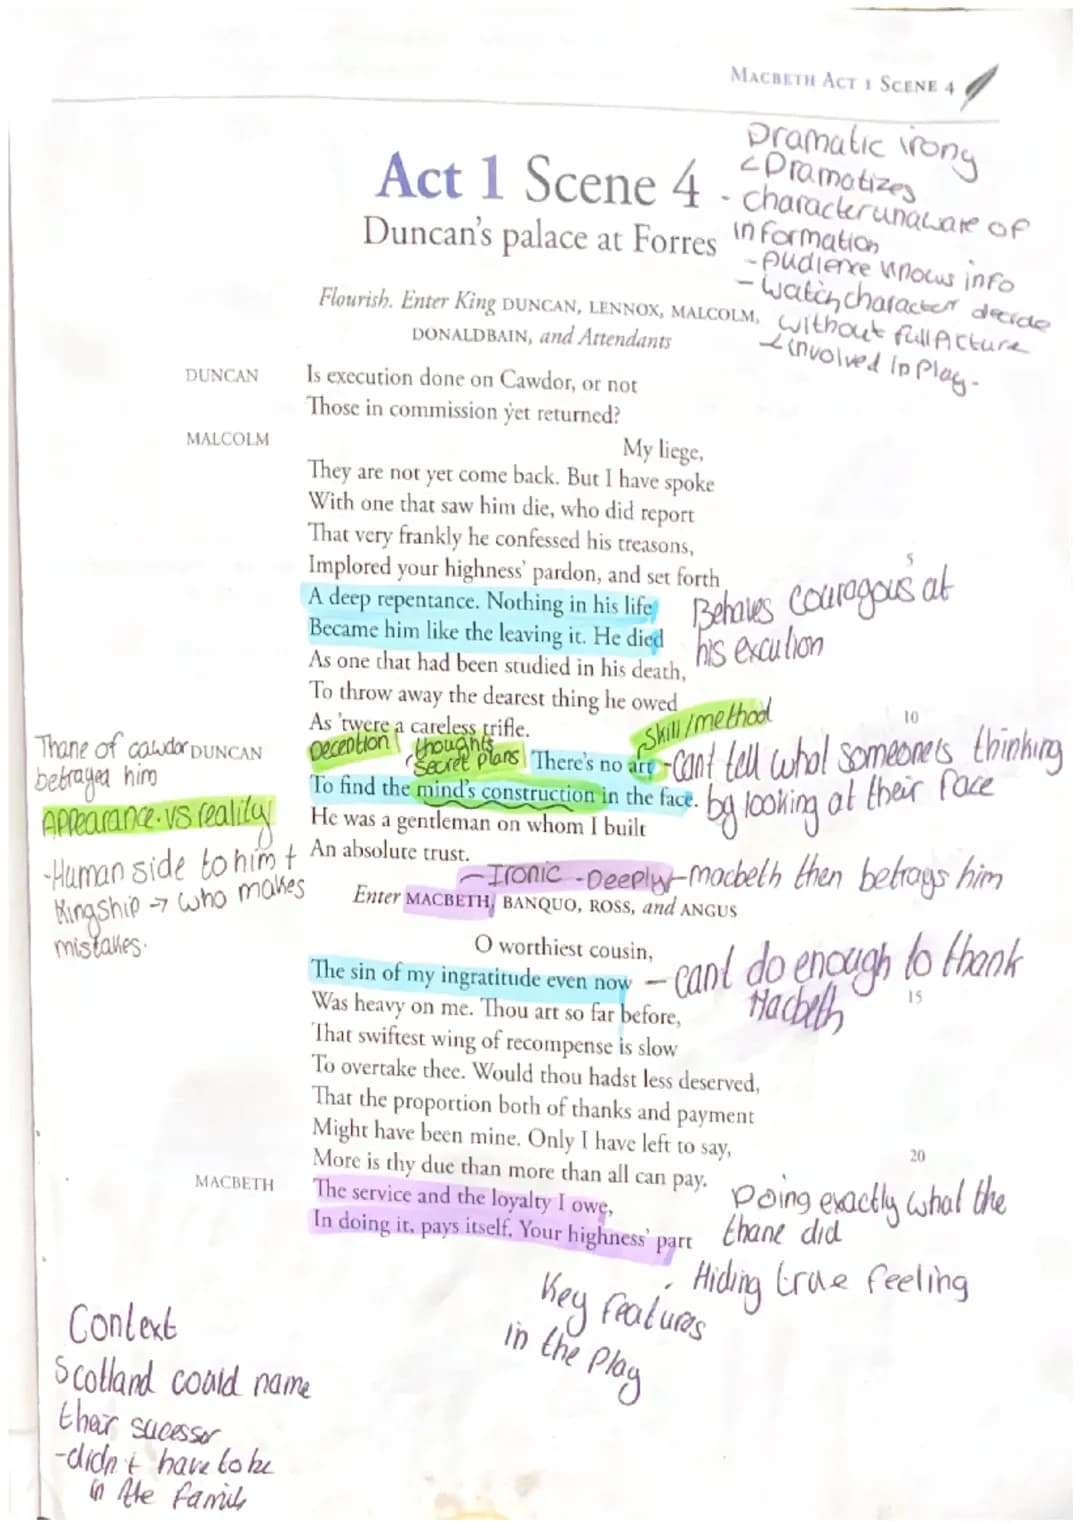 MACBETH ACT 1 SCENE 4
Dramatic irony
<Dramatizes
- character unaware of
information
- Audience knows info
- watch character decide
without full Picture
<involved in Play.
Act 1 Scene 4
Duncan's palace at Forres
Flourish. Enter King DUNCAN, LENNOX, MALCOLM,
DONALDBAIN, and Attendants
DUNCAN Is execution done on Cawdor, or not
Those in commission yet returned?
MALCOLM My liege,
They are not yet come back. But I have spoke
With one that saw him die, who did report
That very frankly he confessed his treasons, 5
Implored your highness' pardon, and set forth
A deep repentance. Nothing in his life
Became him like the leaving it. He died
Behaves Couragous at
his excution
As one that had been studied in his death,
To throw away the dearest thing he owed 10
As 'twere a careless trifle.
Deception thoughts
secret plans
Skill/method
DUNCAN There's no art
To find the mind's construction in the face.
-Cant tell what someone is thinking
by looking at their face
He was a gentleman on whom I built
An absolute trust.
Thane of cawdor
betrayed him
Appearance.vs reality
-Human side to him +
Kingship → who makes
mistakes.
-Ironic -Deeply-macbeth then betrays him
Enter MACBETH, BANQUO, ROSS, and ANGUS
O worthiest cousin,
The sin of my ingratitude even now 15
- cant do enough to thank
Macbeth
Was heavy on me. Thou art so far before,
That swiftest wing of recompense is slow
To overtake thee. Would thou hadst less deserved,
That the proportion both of thanks and payment
Might have been mine. Only I have left to say, 20
More is thy due than more than all can pay.
MACBETH The service and the loyalty I owe,
In doing it, pays itself. Your highness' part
Doing exactly what the
thane did
Hiding true feeling
Key features
in the Play
Context
Scotland could name
their sucessor
-didn't have to be
in the family